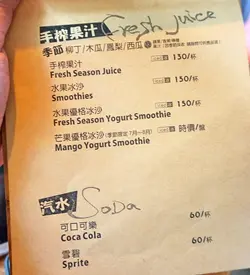 手榨果汁 Fresh Juice
季節 柳丁/木瓜/鳳梨/西瓜
手榨果汁 130/杯
Fresh Season Juice
水果冰沙 150/杯
Smoothies
水果優格冰沙 150/杯
Fresh Season Yogurt Smoothie
芒果優格冰沙(季節限定 7月~9月) 時價/盤
Mango Yogurt Smoothie
汽水 SoDa
可口可樂 60/杯
Coca Cola
雪碧 60/杯
Sprite